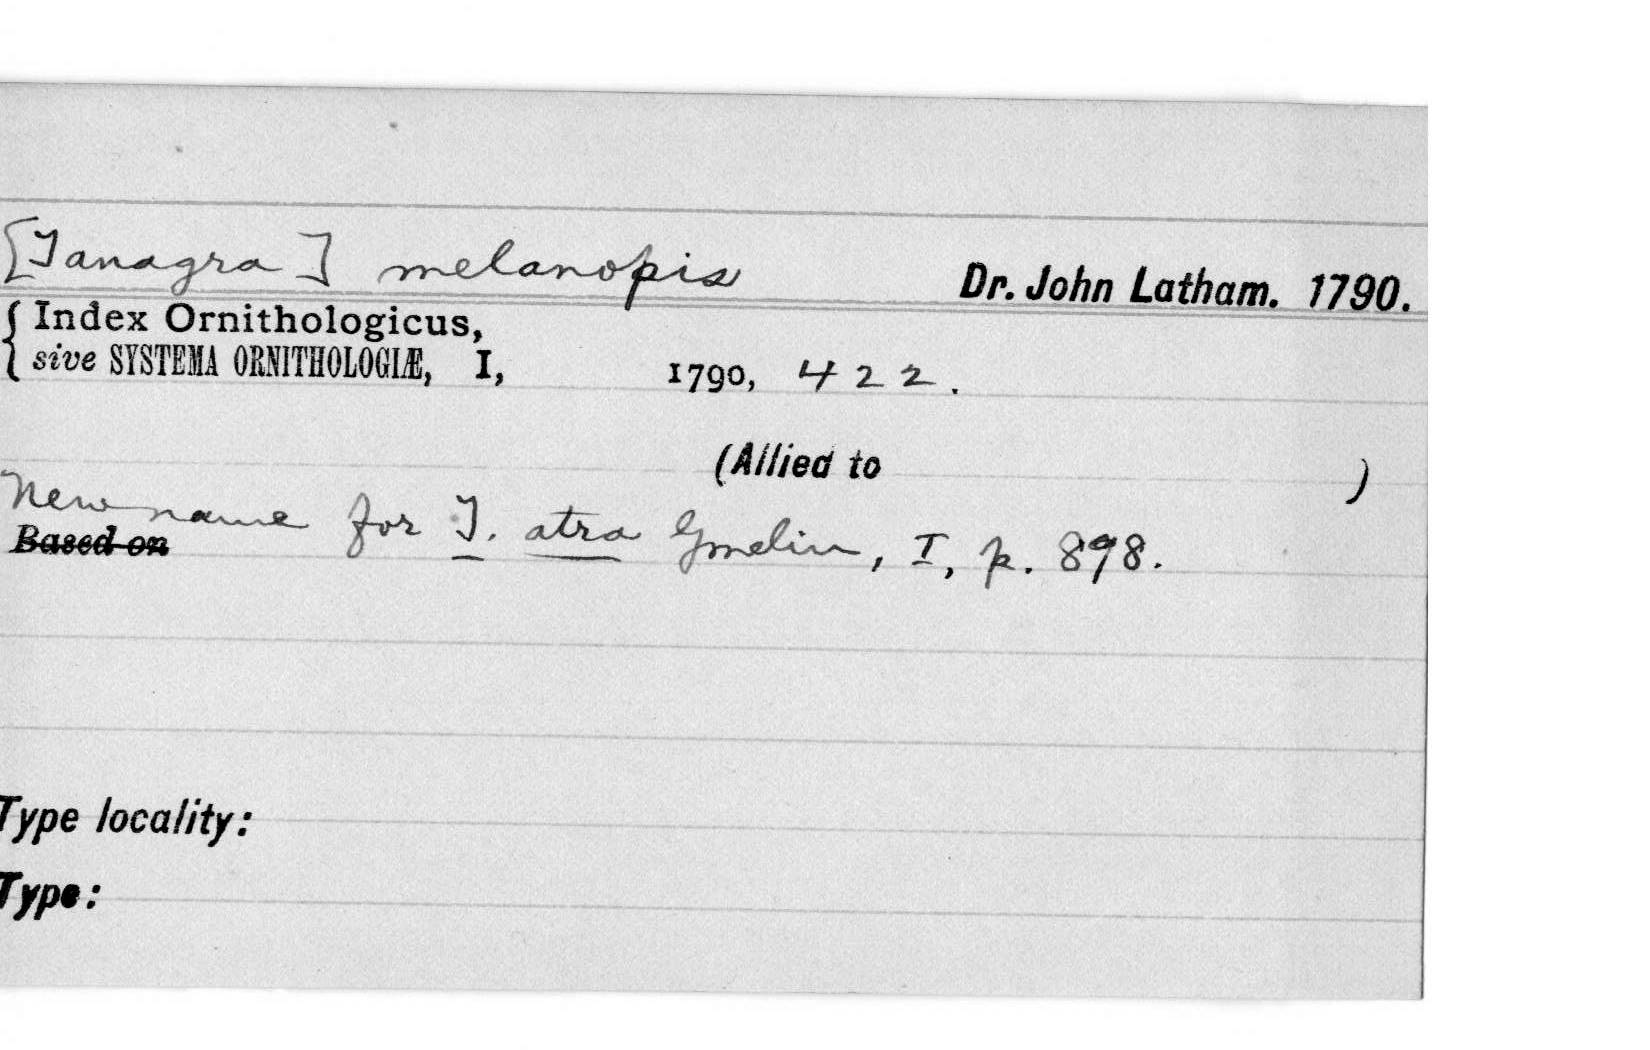 [Tanagra] melanopis Dr. John Latham. 1790.
{ Index Ornithologicus,
sive SYSTEMA ORNITHOLOGIÆ, I, 1790, 422.
(Allied to )
New name for T. atra Gmelin, I, p. 898.
Based on
Type locality:
Type: